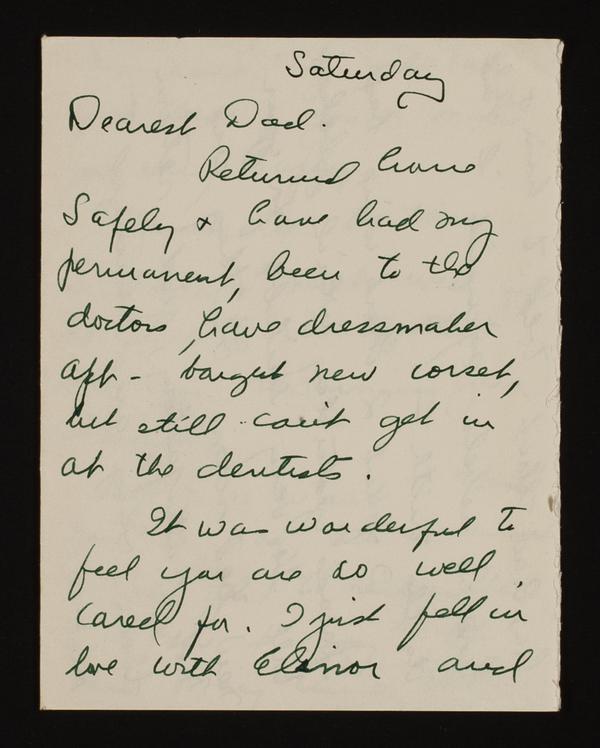 Saturday
Dearest Dad.
Returned home
Safely & have had my
permanent, been to the
doctors, have dressmaker
app - bought new corset,
but still can't get in
at the dentists.
It was wonderful to
feel you are so well
cared for. I just fell in
love with Elinor and